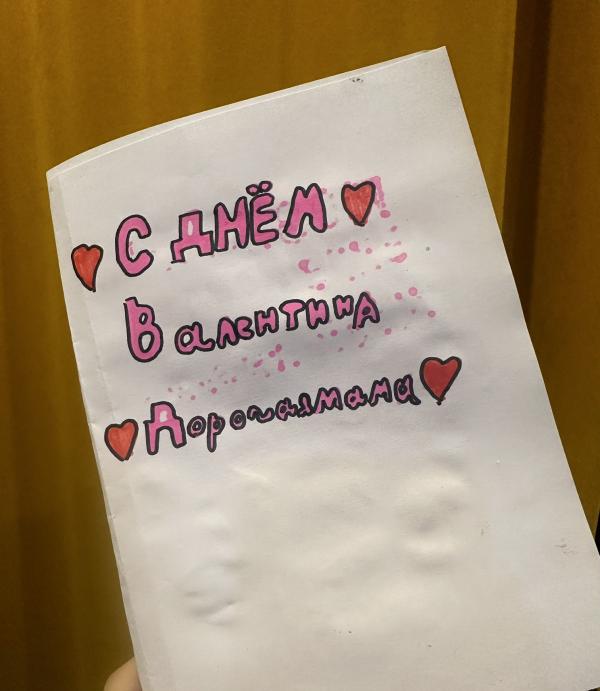 С ДНЁМ
Валентина
Дорогаямама